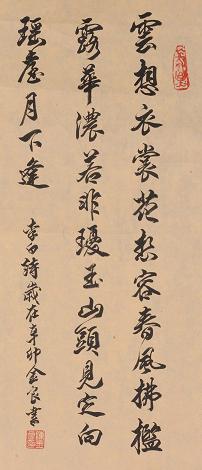 雲想衣裳花想容春風拂檻
露華濃若非瓊玉山頭見定向
瑶臺月下逢
李白詩歲在辛卯金良書